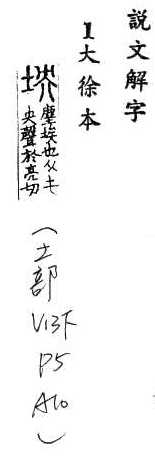 説文解字
1大徐本
坱 塵埃也从土
央聲於亮切
(土部
V13下
P5
A10)